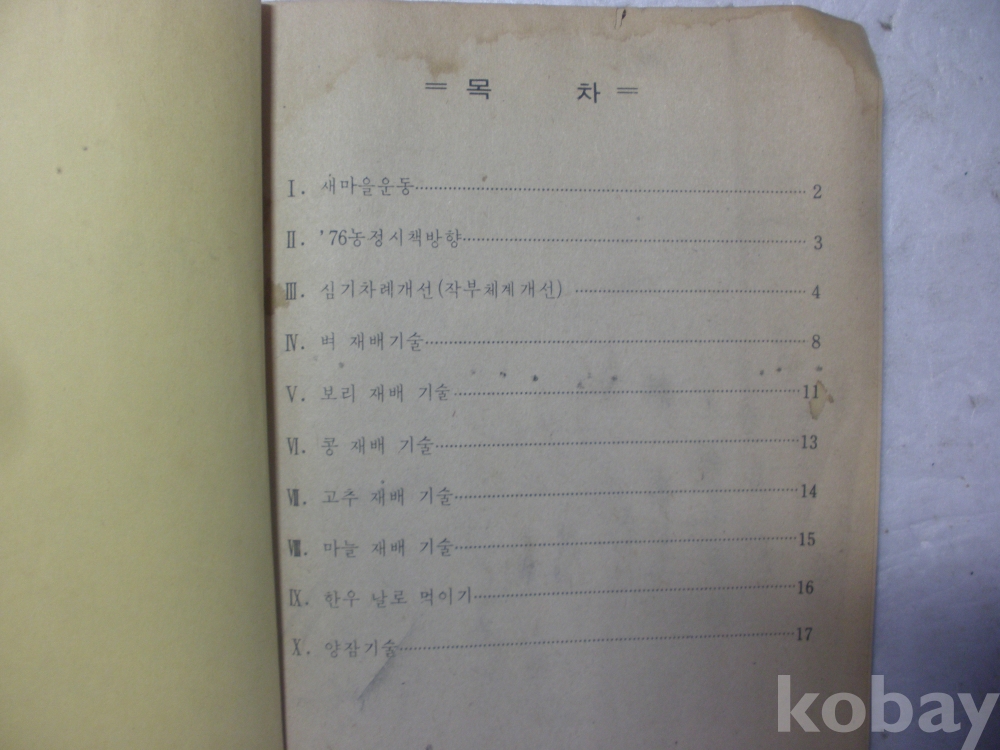 = 목 차 =
Ⅰ. 새마을운동 2
Ⅱ. '76농정시책방향 3
Ⅲ. 심기차례개선(작부체계개선) 4
Ⅳ. 벼 재배기술 8
Ⅴ. 보리 재배 기술 11
Ⅵ. 콩 재배 기술 13
Ⅶ. 고추 재배 기술 14
Ⅷ. 마늘 재배 기술 15
Ⅸ. 한우 날로 먹이기 16
Ⅹ. 양잠기술 17
kobay